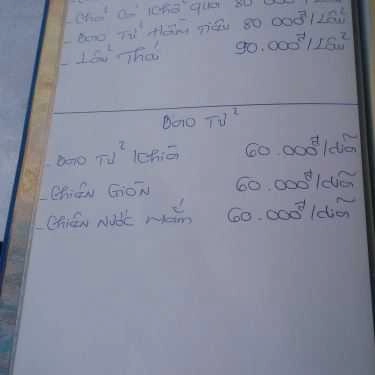 - Cháo Cá Khổ Qua 80 000đ/Lẩu
- Bao Tử Hầm Tiêu 80 000đ/Lẩu
- Lẩu Thái 90.000đ/Lẩu
Bao Tử
- Bao Tử Khìa 60.000đ/dĩa
- Chiên Giòn 60.000đ/dĩa
- Chiên Nước Mắm 60.000đ/dĩa